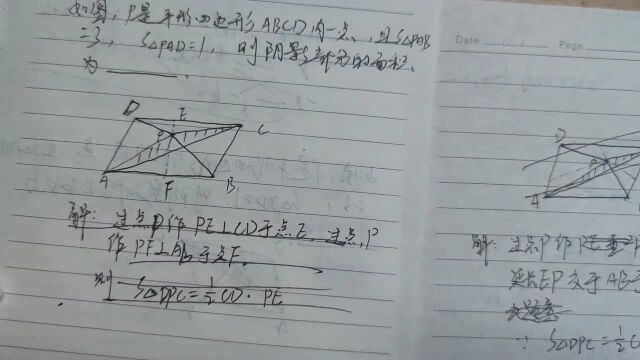 如图，P是平行四边形ABCD内一点，且S△PAB
=3，S△PAD=1，则阴影部分的面积
为
D E C
A F B
解：过点P作PE⊥CD于点E，过点P
作PF⊥AB于点F，
则 S△DPC=½CD·PE
Date
Page
D
A
解：过点P作P
延长EP交于AB于
∵ S△DPC=½C